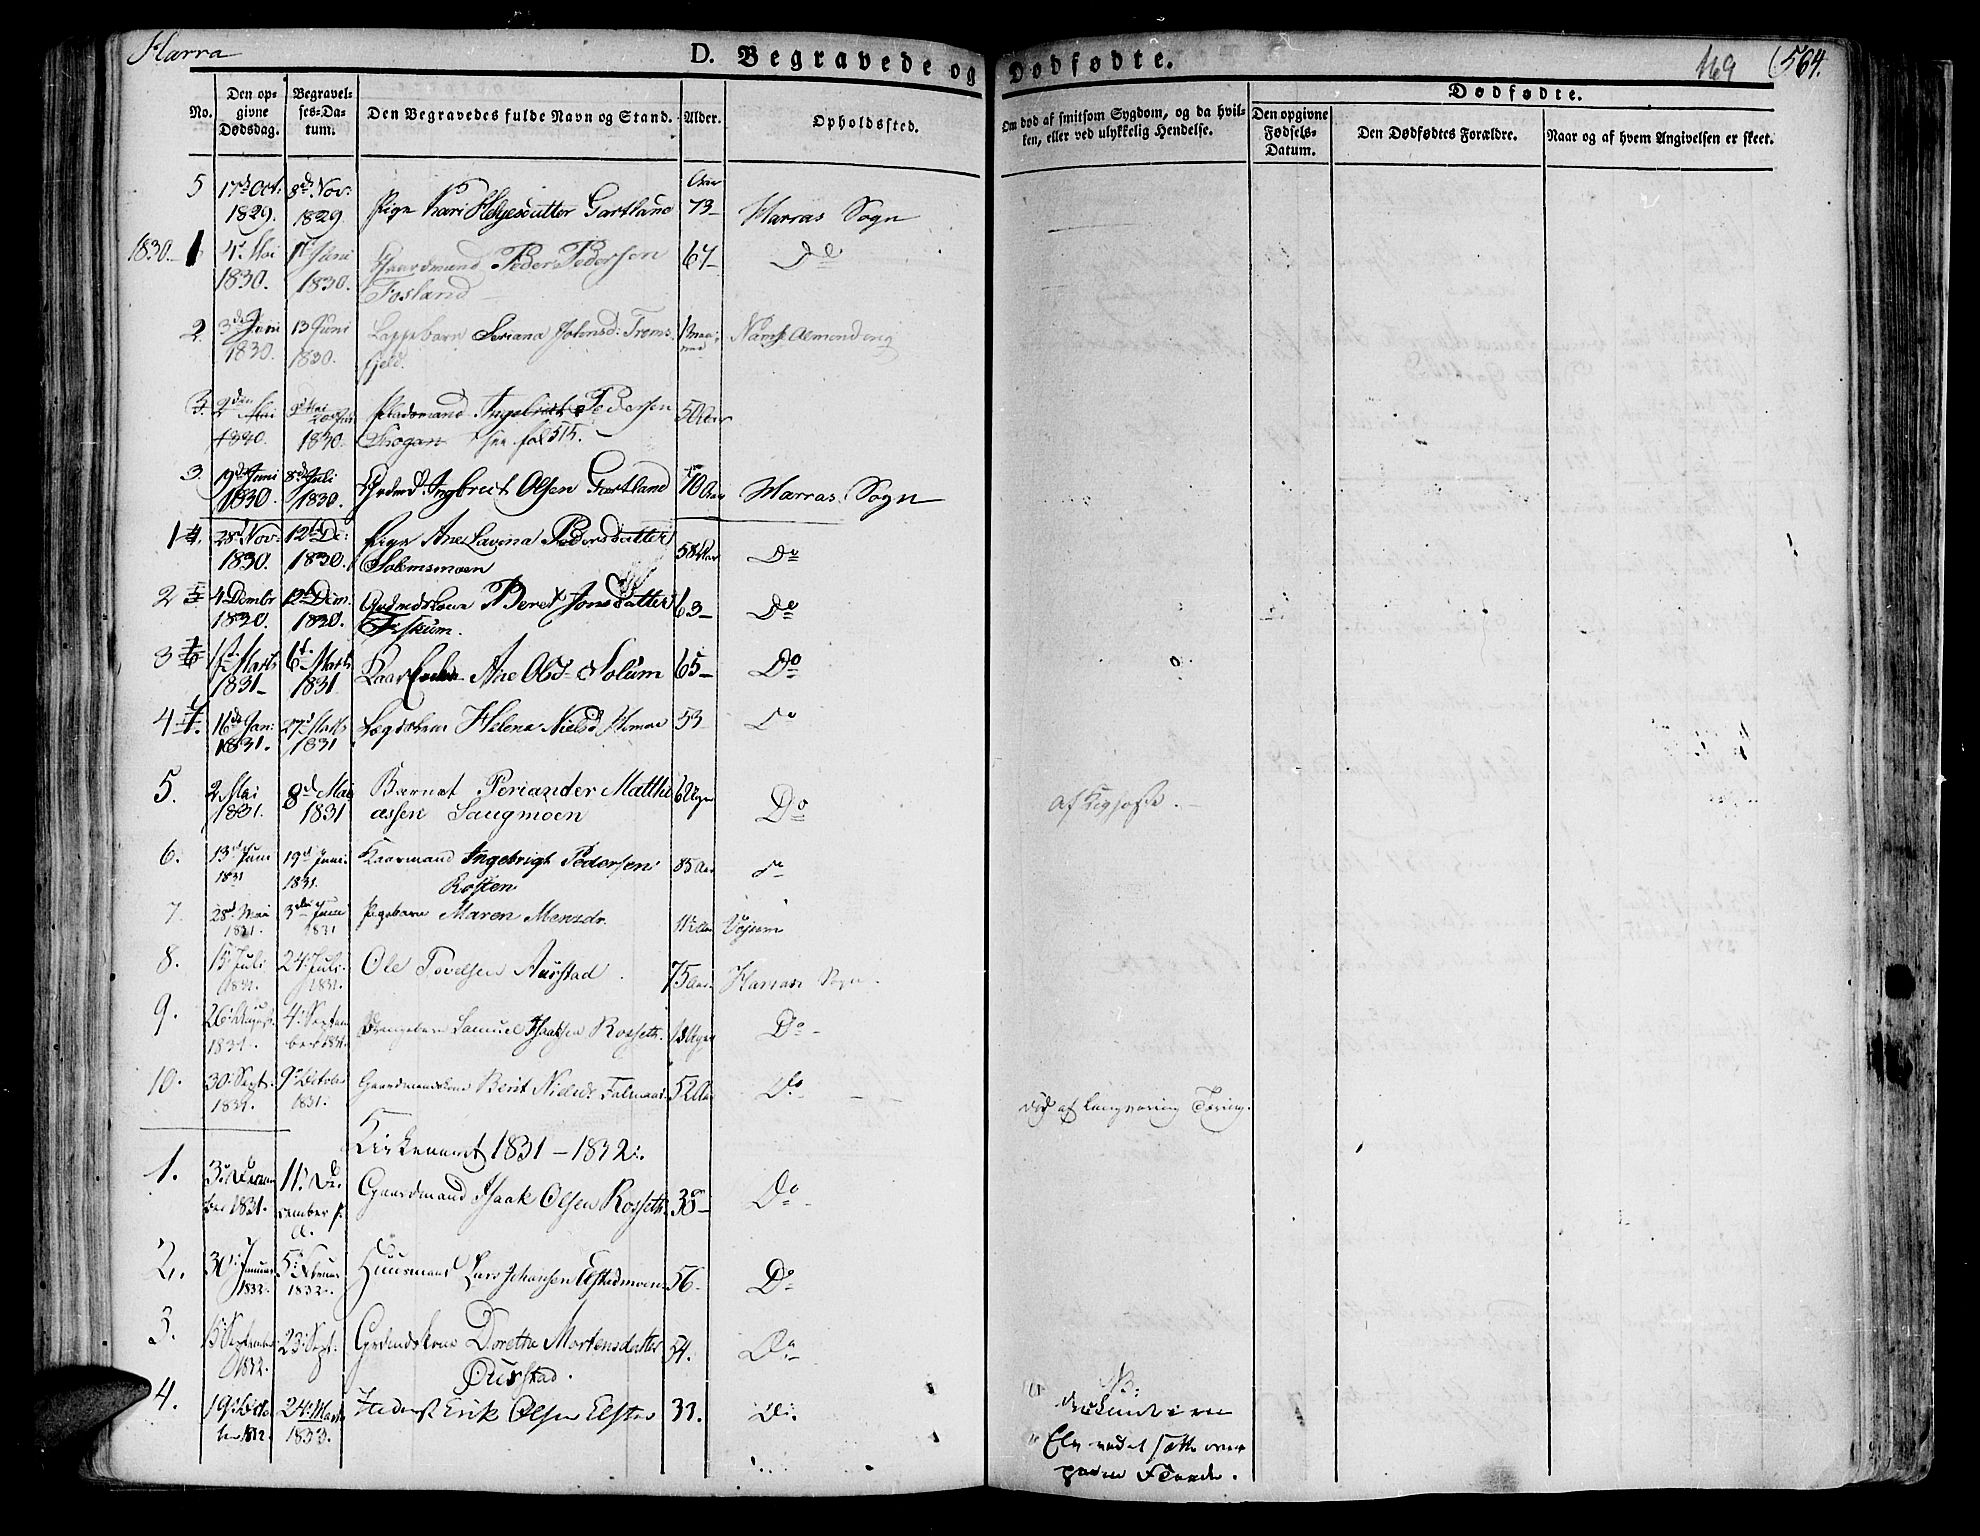 Harra
D. Begravede og Dødfødte.
169 564.
No.
Den opgivne Dødsdag.
Begravelses-Datum.
Den Begravedes fulde Navn og Stand.
Alder.
Opholdssted.
Om død af smitsom Sygdom, og da hvilken, eller ved ulykkelig Hendelse.
Dødfødte.
Den opgivne Fødsels-Datum.
Den Dødfødtes Forældre.
Naar og af hvem Angivelsen er skeet.
5 17de Oct. 1829. 8de Nov: 1829 Pige Kari Helgesdatter Gartland 73 Harras Sogn
1830. 1 4. Mai 1830. 1. Juni 1830. Gaardmand Peder Pedersen Fosland 67 Do
2. 3de Juni 1830. 13 Juni 1830. Lappebarn Johnsd: Troms fjeld.
3. 2den Mai 1830. 1830. Pladsmand Pedersen Skogan see fol 515. 50 Aar
3. 19de Juni 1830. 8de Juli 1830. Ingbret Olsen Gartland 70 Aar Harras Sogn
1 4. 28de Nov: 1830. 12te De: 1830. Pige Ane Lavina Pedersdatter Solemsmoen 58 Aar Do
2 5 4 Dembr 1830. 12te Dem. 1830. Beret Jonsdatter Fiskum. 63 Do
3 6 1. Marts 1831 6te Marts 1831 Ane Olsd Solum 65 Do
4 7. 16de Jan: 1831. 27de Marts 1831 Helena Nielsd 53 Do
5. 2 Mai 1831. 8de Mai 1831 Barnet Periander Matthi assen Saugmoen 6 Uger Do
6. 13de Juni 1831 19de Juni. 1831. Kaarmand Ingebrigt Pedersen Rosten 85 Aar do
7. 28de Mai 1831. 3die Juni 1831 Pigebarn Maren
8. 15. Juli 1831. 24. Juli 1831. Ole Tovelsen Aurstad 75 Aar. Harras Sogn.
9. 26. August 1831. 4. Septem ber 1831. Drengebarn Samuel Isaaksen Rosseth. Uger Do
10. 30. Sept. 1831. 9. October 1831. Gaardmandskone Berit Nielsd: 52 Aar Do død af langvarig Tæring.
Kirkeaaret 1831 – 1832.
1. 3. Decem ber 1831. 11. De cember s. a. Gaardmand Isaak Olsen Rosseth 38 Do
2. 30. Januar 1832. 5. Februar 1832. Huusmand Lars Johansen Elstadmoen 56. Do
3. Septembr 1832. 23. Sept. Dorethe Mortensdatter Aurstad. 54. Do
4. 19. Octo ber 1832. 24. Marts 1833. Erik Olsen 33. Do
NB. druknet i en Elv ved at sætte over paa en Flaade.